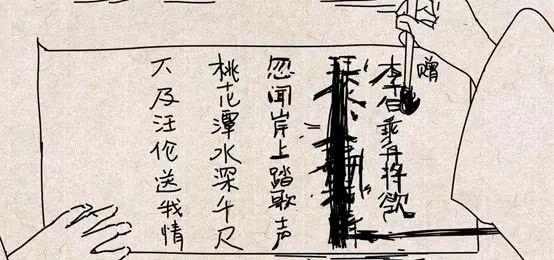 赠
李白乘舟将欲
忽闻岸上踏歌声
桃花潭水深千尺
不及汪伦送我情